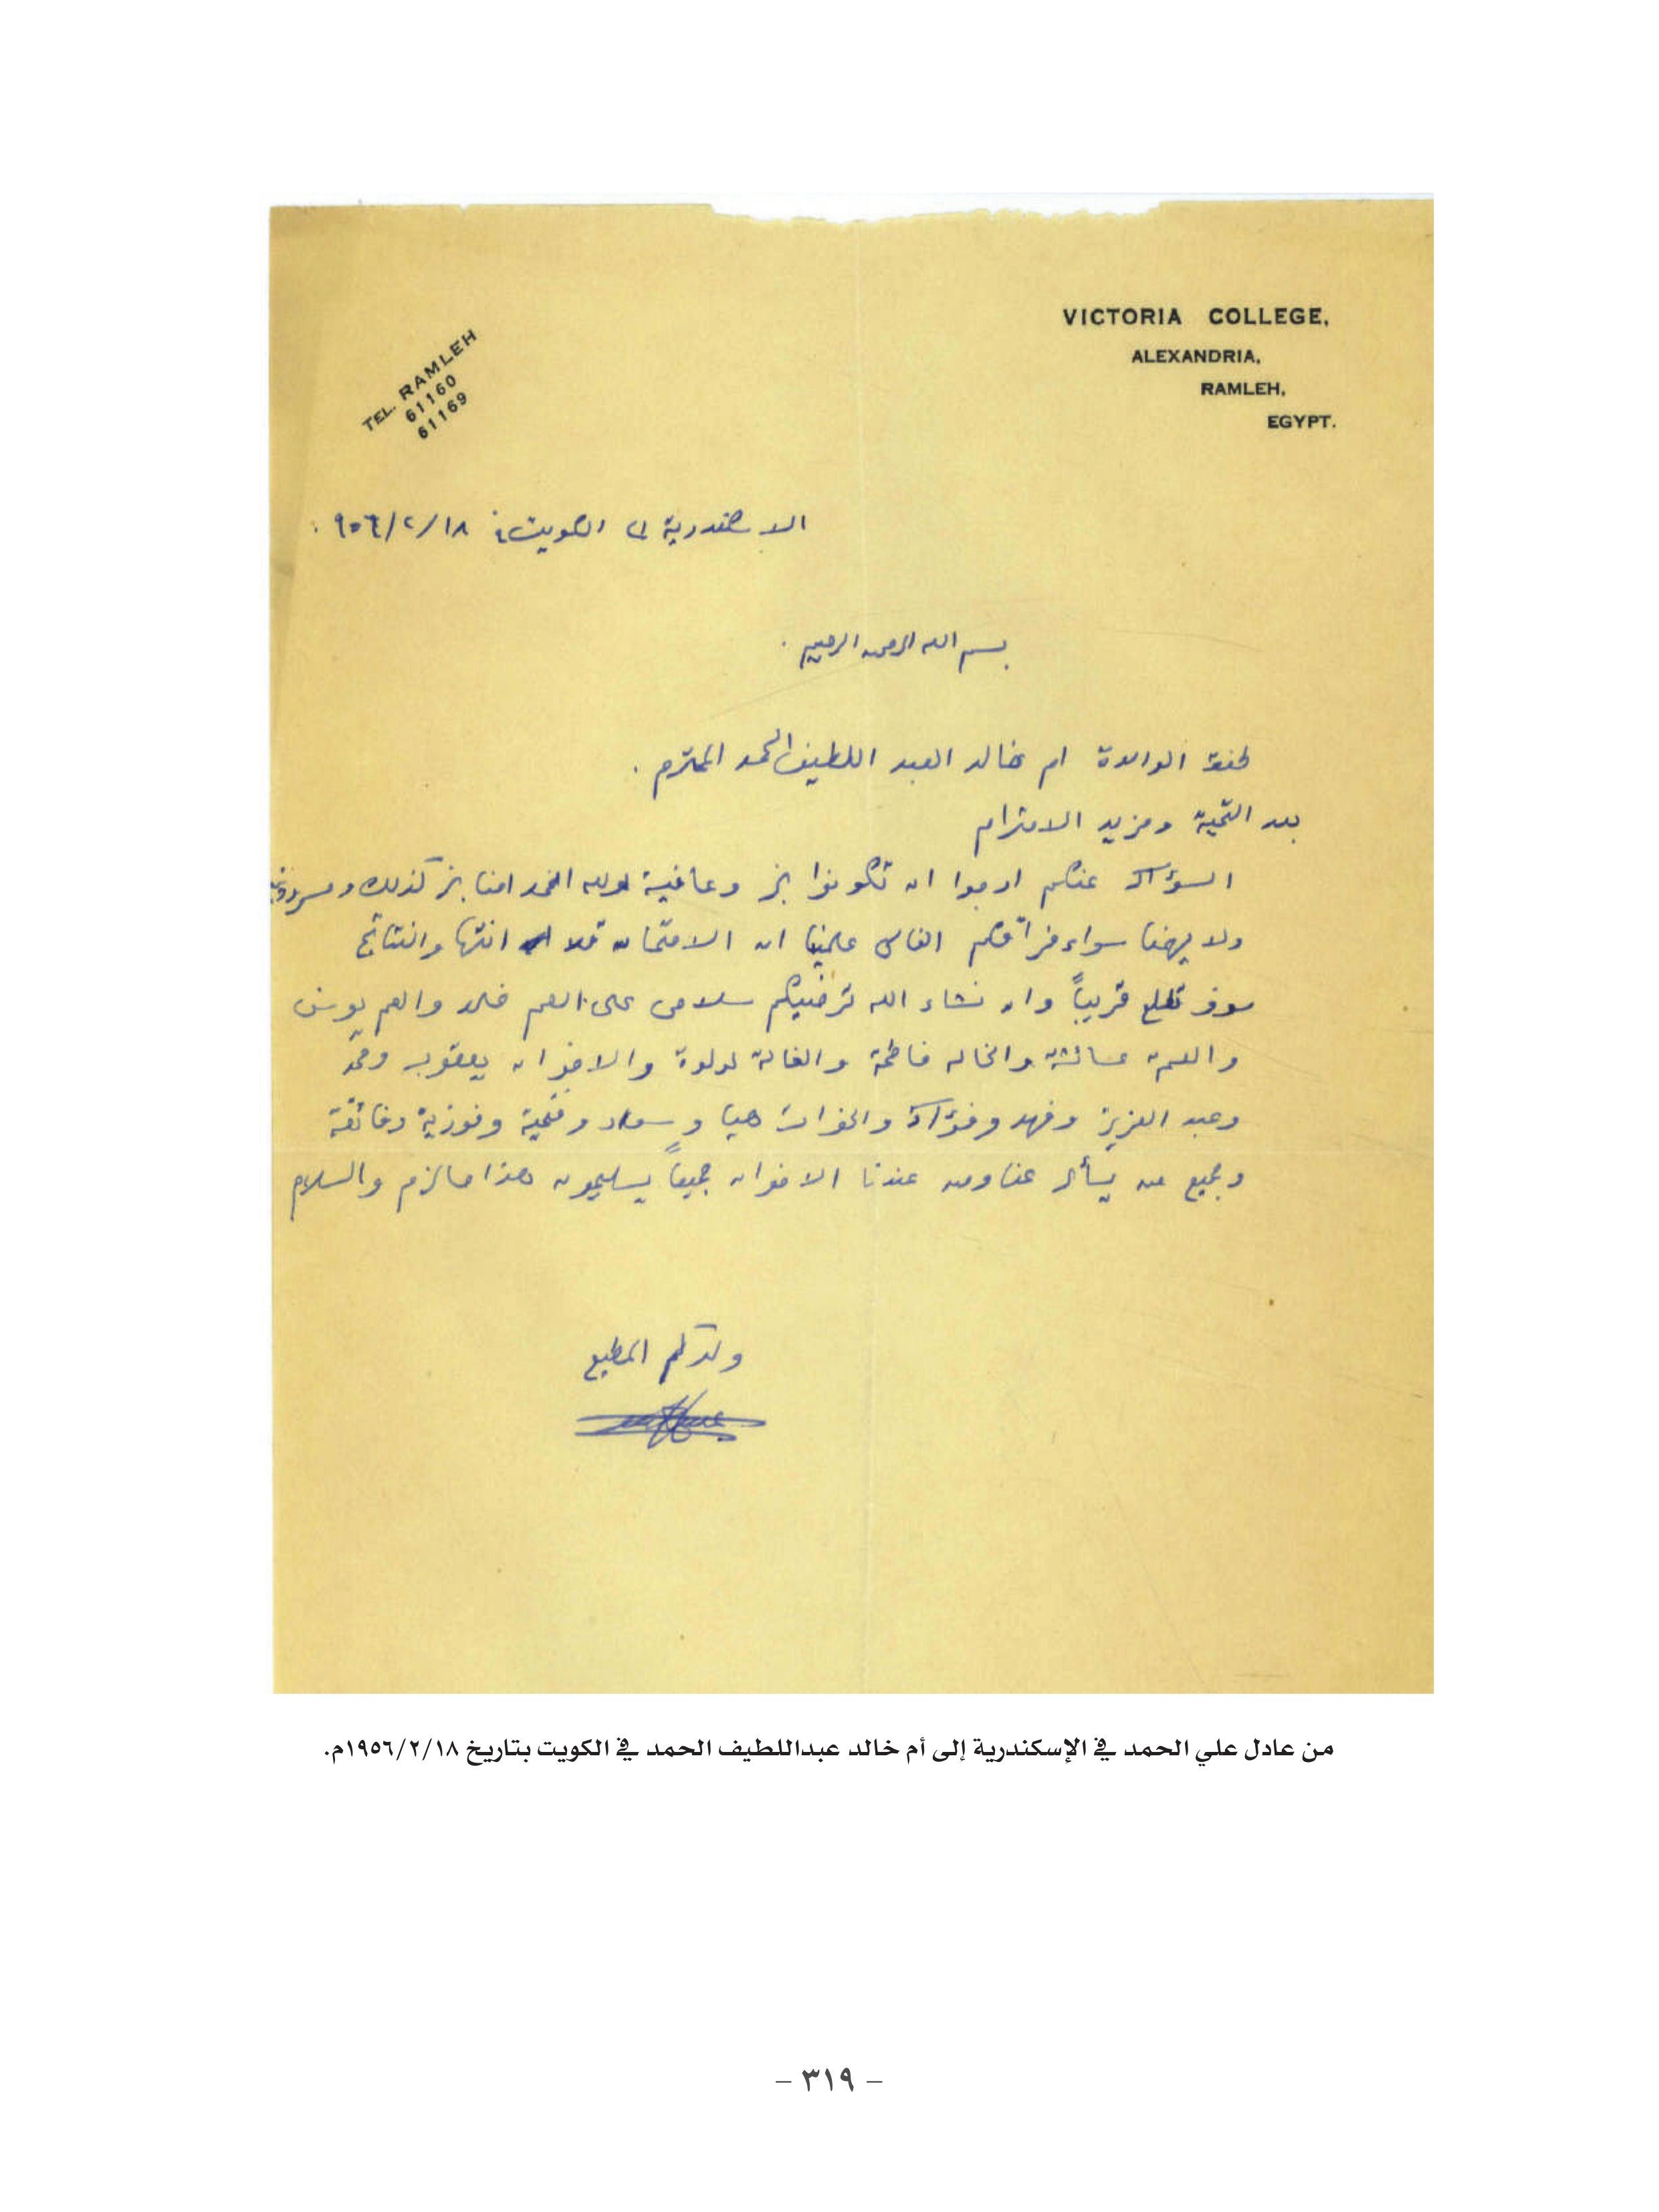 VICTORIA COLLEGE,
ALEXANDRIA,
RAMLEH,
EGYPT.
TEL. RAMLEH
61160
61169
الاسكندرية الكويت في ٩٥٦/٢/١٨
بسم الله الرحمن الرحيم.
الوالدة ام خالد العبد اللطيف الحمد المحترم.
بعد التحية ومزيد الاحترام
السؤال عنكم ارجوا ان تكونوا بخير وعافية ولله الحمد امنا بخير كذلك
ولا يهمنا سواء فراقكم الغالى علمنا ان الامتحان انتها والنتائج
سوف تطلع قريباً وان نشاء الله ترضيكم سلامى على العم خالد والعم يوسف
والعمه عائشه والخاله فاطمة والخالة لولوة والاخوان يعقوب ومحمد
وعبد العزيز وفهد وفؤاد والخوات هيا وسعاد وفتحية وفوزية وفائقة
وجميع من يسأل عنا ومن عندنا الاخوان جميعاً يسلمون هذا مالزم والسلام
ولدكم المطيع
من عادل علي الحمد في الإسكندرية إلى أم خالد عبداللطيف الحمد في الكويت بتاريخ ١٩٥٦/٢/١٨م.
– ٣١٩ –